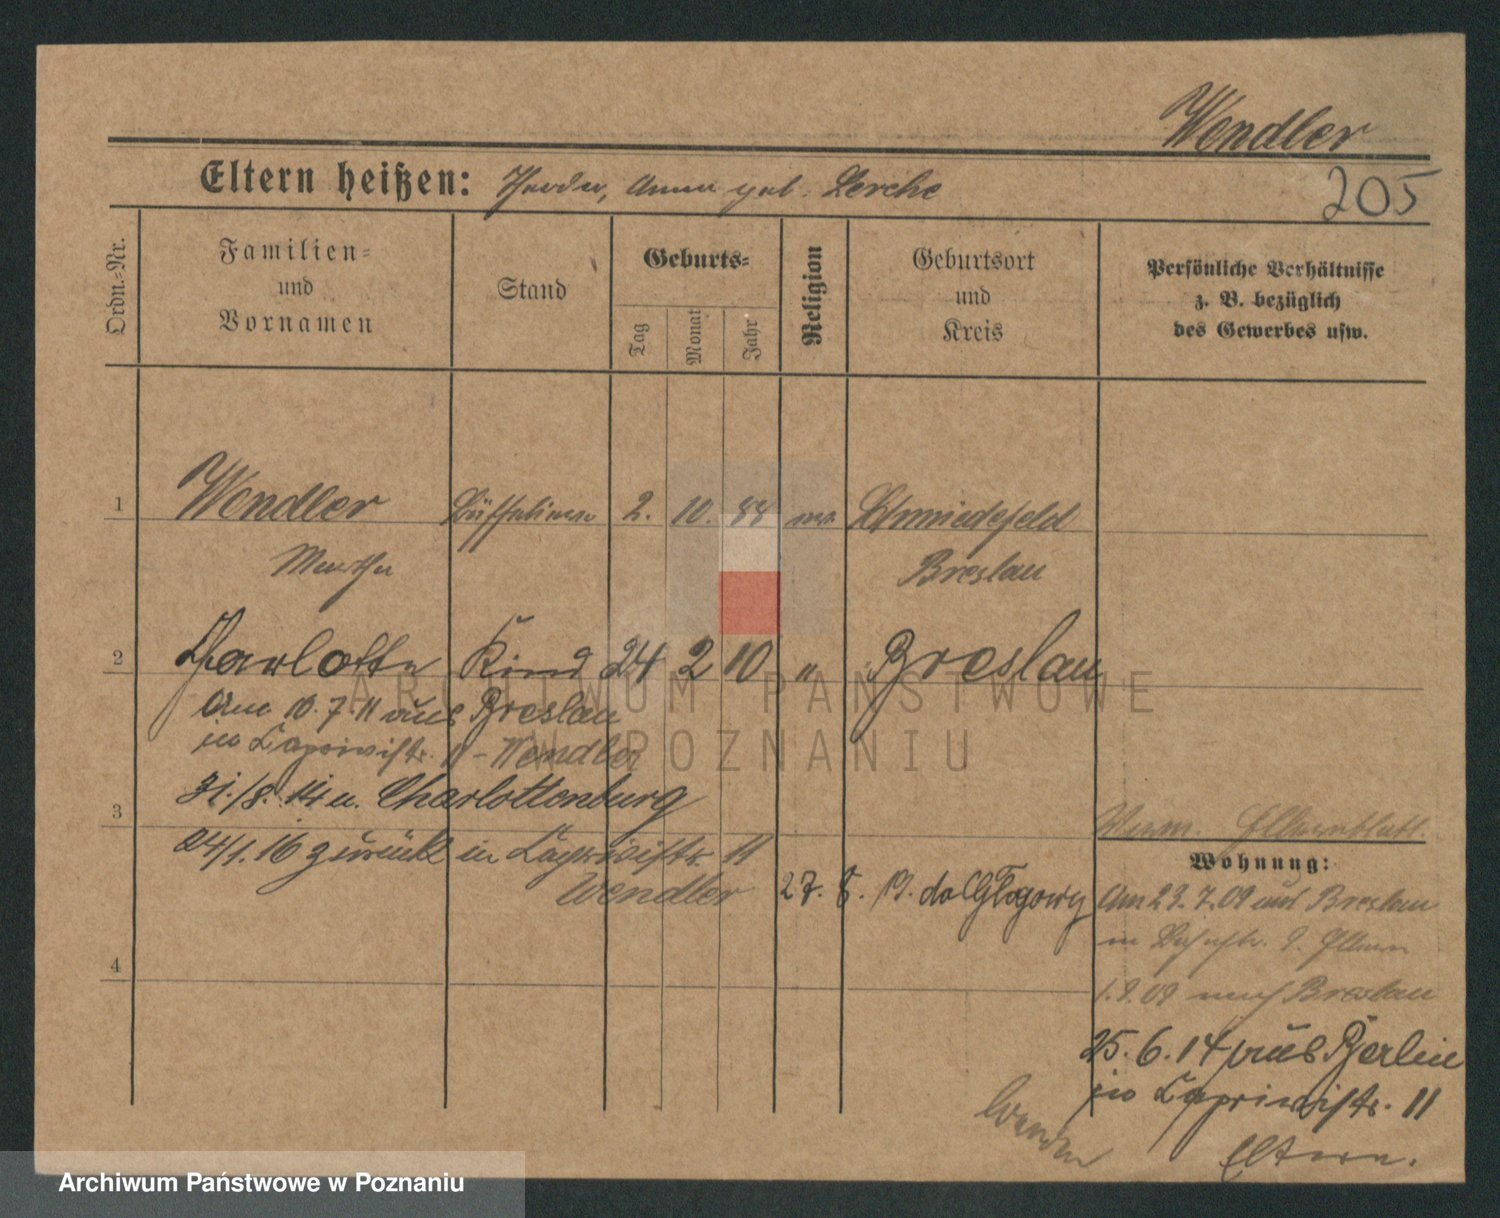 Wendler
Eltern heißen: Anna geb. Lerche
205
Ordn.-Nr.
Familien-
und
Vornamen
Stand
Geburts-
Tag
Monat
Jahr
Religion
Geburtsort
und
Kreis
Persönliche Verhältnisse
z. B. bezüglich
des Gewerbes usw.
1
Wendler 2. 10. 88 Schmiedefeld
Martha Breslau
2
Charlotte Kind 24 2 10 " Breslau
Am 10.7.11 aus Breslau
in Caprivistr. 11 - Wendler
31./8. 14 n. Charlottenburg
3
24/1.16 zurück in Caprivistr. 11
Wendler
27. 8. 19. do Głogowy
4
Elternblatt
Wohnung:
Am 23.7.09 aus Breslau
in Eltern
1.9.09 nach Breslau
25.6.14 aus Berlin
in Caprivistr. 11
Eltern.
ARCHIWUM PAŃSTWOWE
W POZNANIU
Archiwum Państwowe w Poznaniu